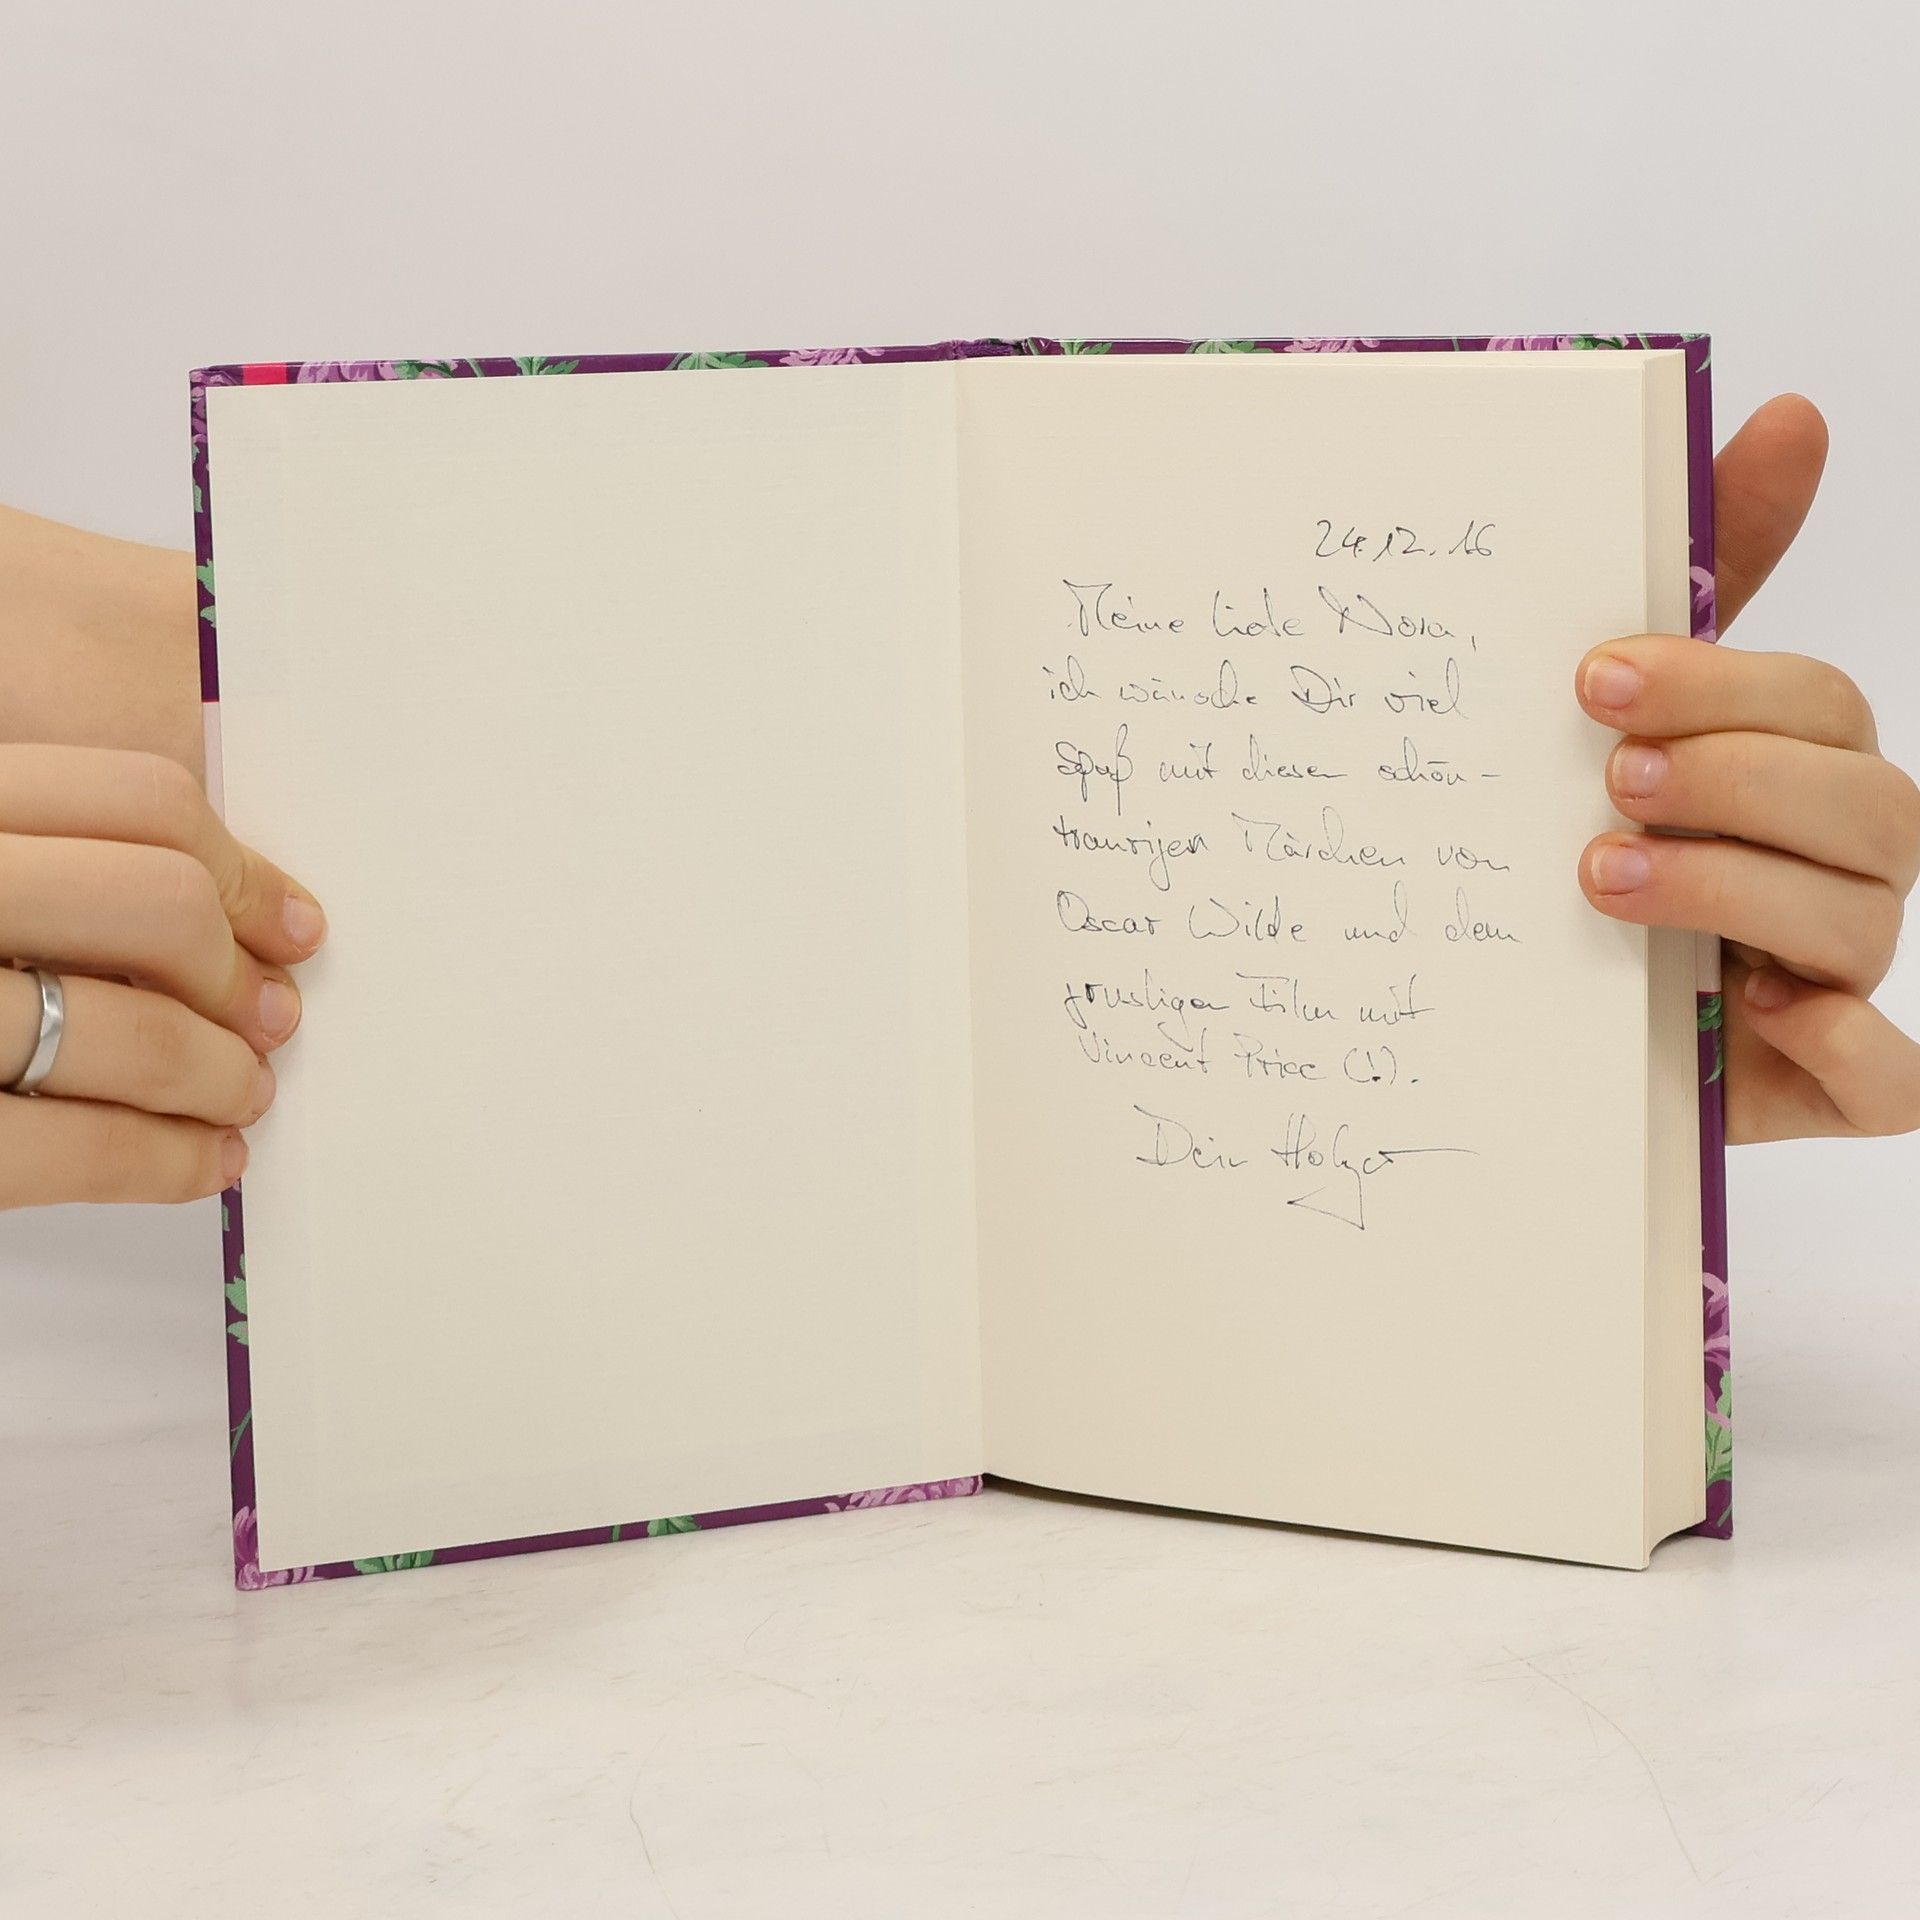 24.12.16
Meine liebe Nora,
ich wünsche Dir viel
Spaß mit diesen schön-
traurigen Märchen von
Oscar Wilde und dem
gruseligen Film mit
Vincent Price (!).
Dein Holger